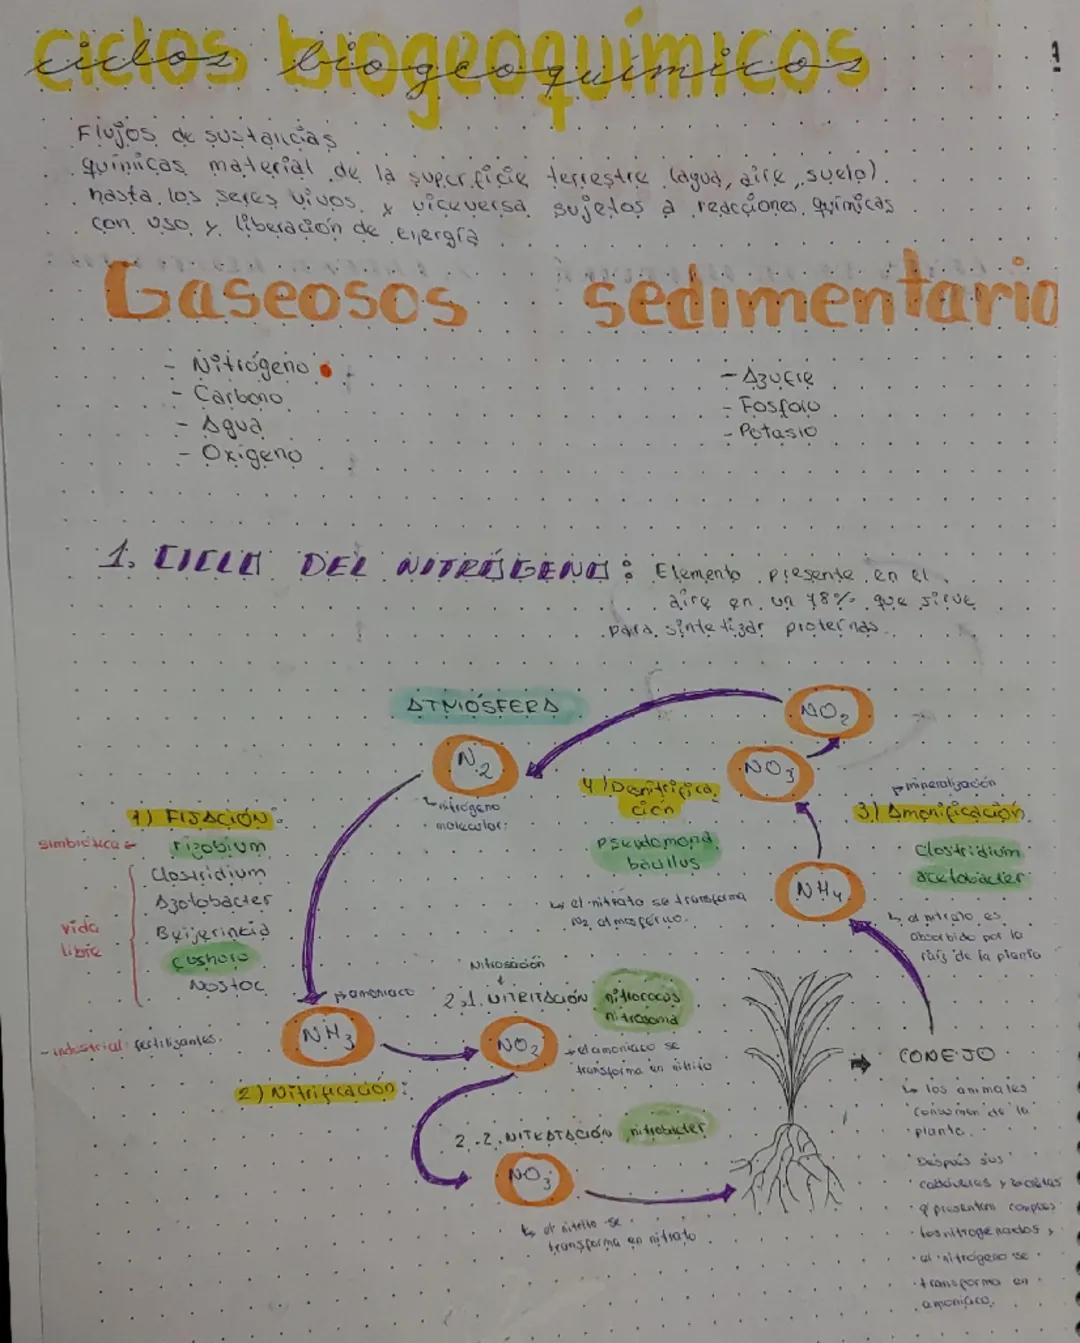 ciclos biogeoquímicos
1
Flujos de sustancias
químicas material de la superficie terrestre (agua, aire, suelo)
hasta los seres vivos y viceversa sujetos a reacciones químicas
con uso y liberación de energía
Gaseosos
- Nitrógeno
- Carbono
- Agua
- Oxígeno
sedimentario
- Azufre
- Fosforo
- Potasio
1. CICLO DEL NITRÓGENO: Elemento presente en el
aire en un 78% que sirve
para sintetizar proteínas.
ATMÓSFERA
N2
nitrógeno
molecular
NO2
NO3
NH4
1) FIJACIÓN:
simbiotica
rizobium
vida
libre
Clostridium
Azotobacter
Beijerinkia
Nostoc
- industrial: fertilizantes.
4) Denitrifica
ción
Pseudomona
bacillus
el nitrato se transforma
N2 atmosférico.
mineralización
3) Amonificación
Clostridium
acetobacter
al nitrato es
absorbido por la
raíz de la planta
amoniaco
NH3
2) Nitrificación:
Nitrosación
2.1. NITRITACIÓN
nitrococus
nitrosoma
NO2
el amoniaco se
transforma en nitrito
2.2. NITRATACIÓN nitrobacter
NO3
el nitrito se
transforma en nitrato
CONEJO
los animales
consumen de la
planta.
Después sus
cadáveres y
q' presentan compues
tos nitrogenados,
el nitrógeno se
transforma en
amoniaco.